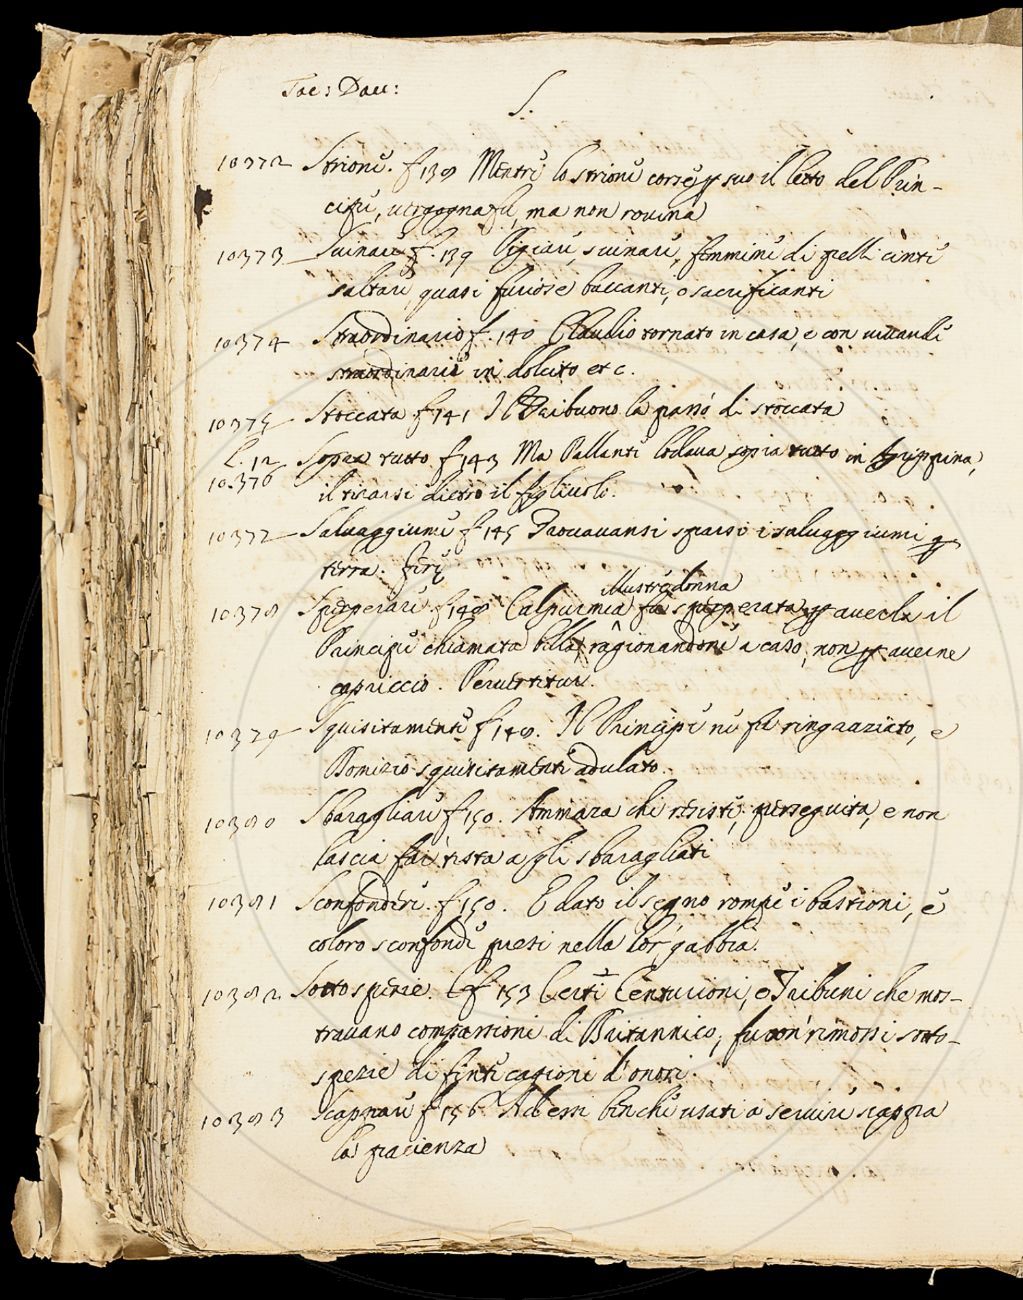 Tac: Dav:
S.
10372 Strione. f 138 Mentre lo strione corse p suo il letto del Prin-
cipe, vergognassi, ma non rovina
10373 Suinare f. 139 Pigiare, suinare, femmine di pelli cinte
saltare quasi furiose baccanti, o sacrificanti
10374 Straordinario f. 140 Claudio tornato in casa, e con vivande
straordinarie in dolcito etc.
10375 Stoccata f 141 Il Tribuno la passò di stoccata
L. 12 Sopra tutto f 143 Ma Pallante lodava sopra tutto in Agrippina,
10376 il tirarsi dietro il figliuolo.
10377 Salvaggiume f 145 Trovavansi sparsi i salvaggiumi p
terra. fere
illustre donna
10378 Sperperare. f 148 Calpurnia fu sperperata p averla il
Principe chiamata bella, ragionandone a caso, non p averne
capriccio. Pervertitur.
10379 Squisitamente f 148. Il Principe ne fu ringraziato, e
Domizio squisitamente adulato.
10380 Sbaragliare f 150. Ammaza chi resiste, perseguita, e non
lascia far testa agli sbaragliati
10381 Sconfondere. f 150. E dato il segno rompe i bastioni, e
coloro sconfonde presi nella lor gabbia.
10382 Sotto spezie. f 153 Certi Centurioni, e Tribuni che mos-
travano compassione di Britannico, furon rimossi sotto-
spezie di finte cagioni d'onori.
10383 Scappare f 156 Ad essi benche usati a servire scappa
la pacienza